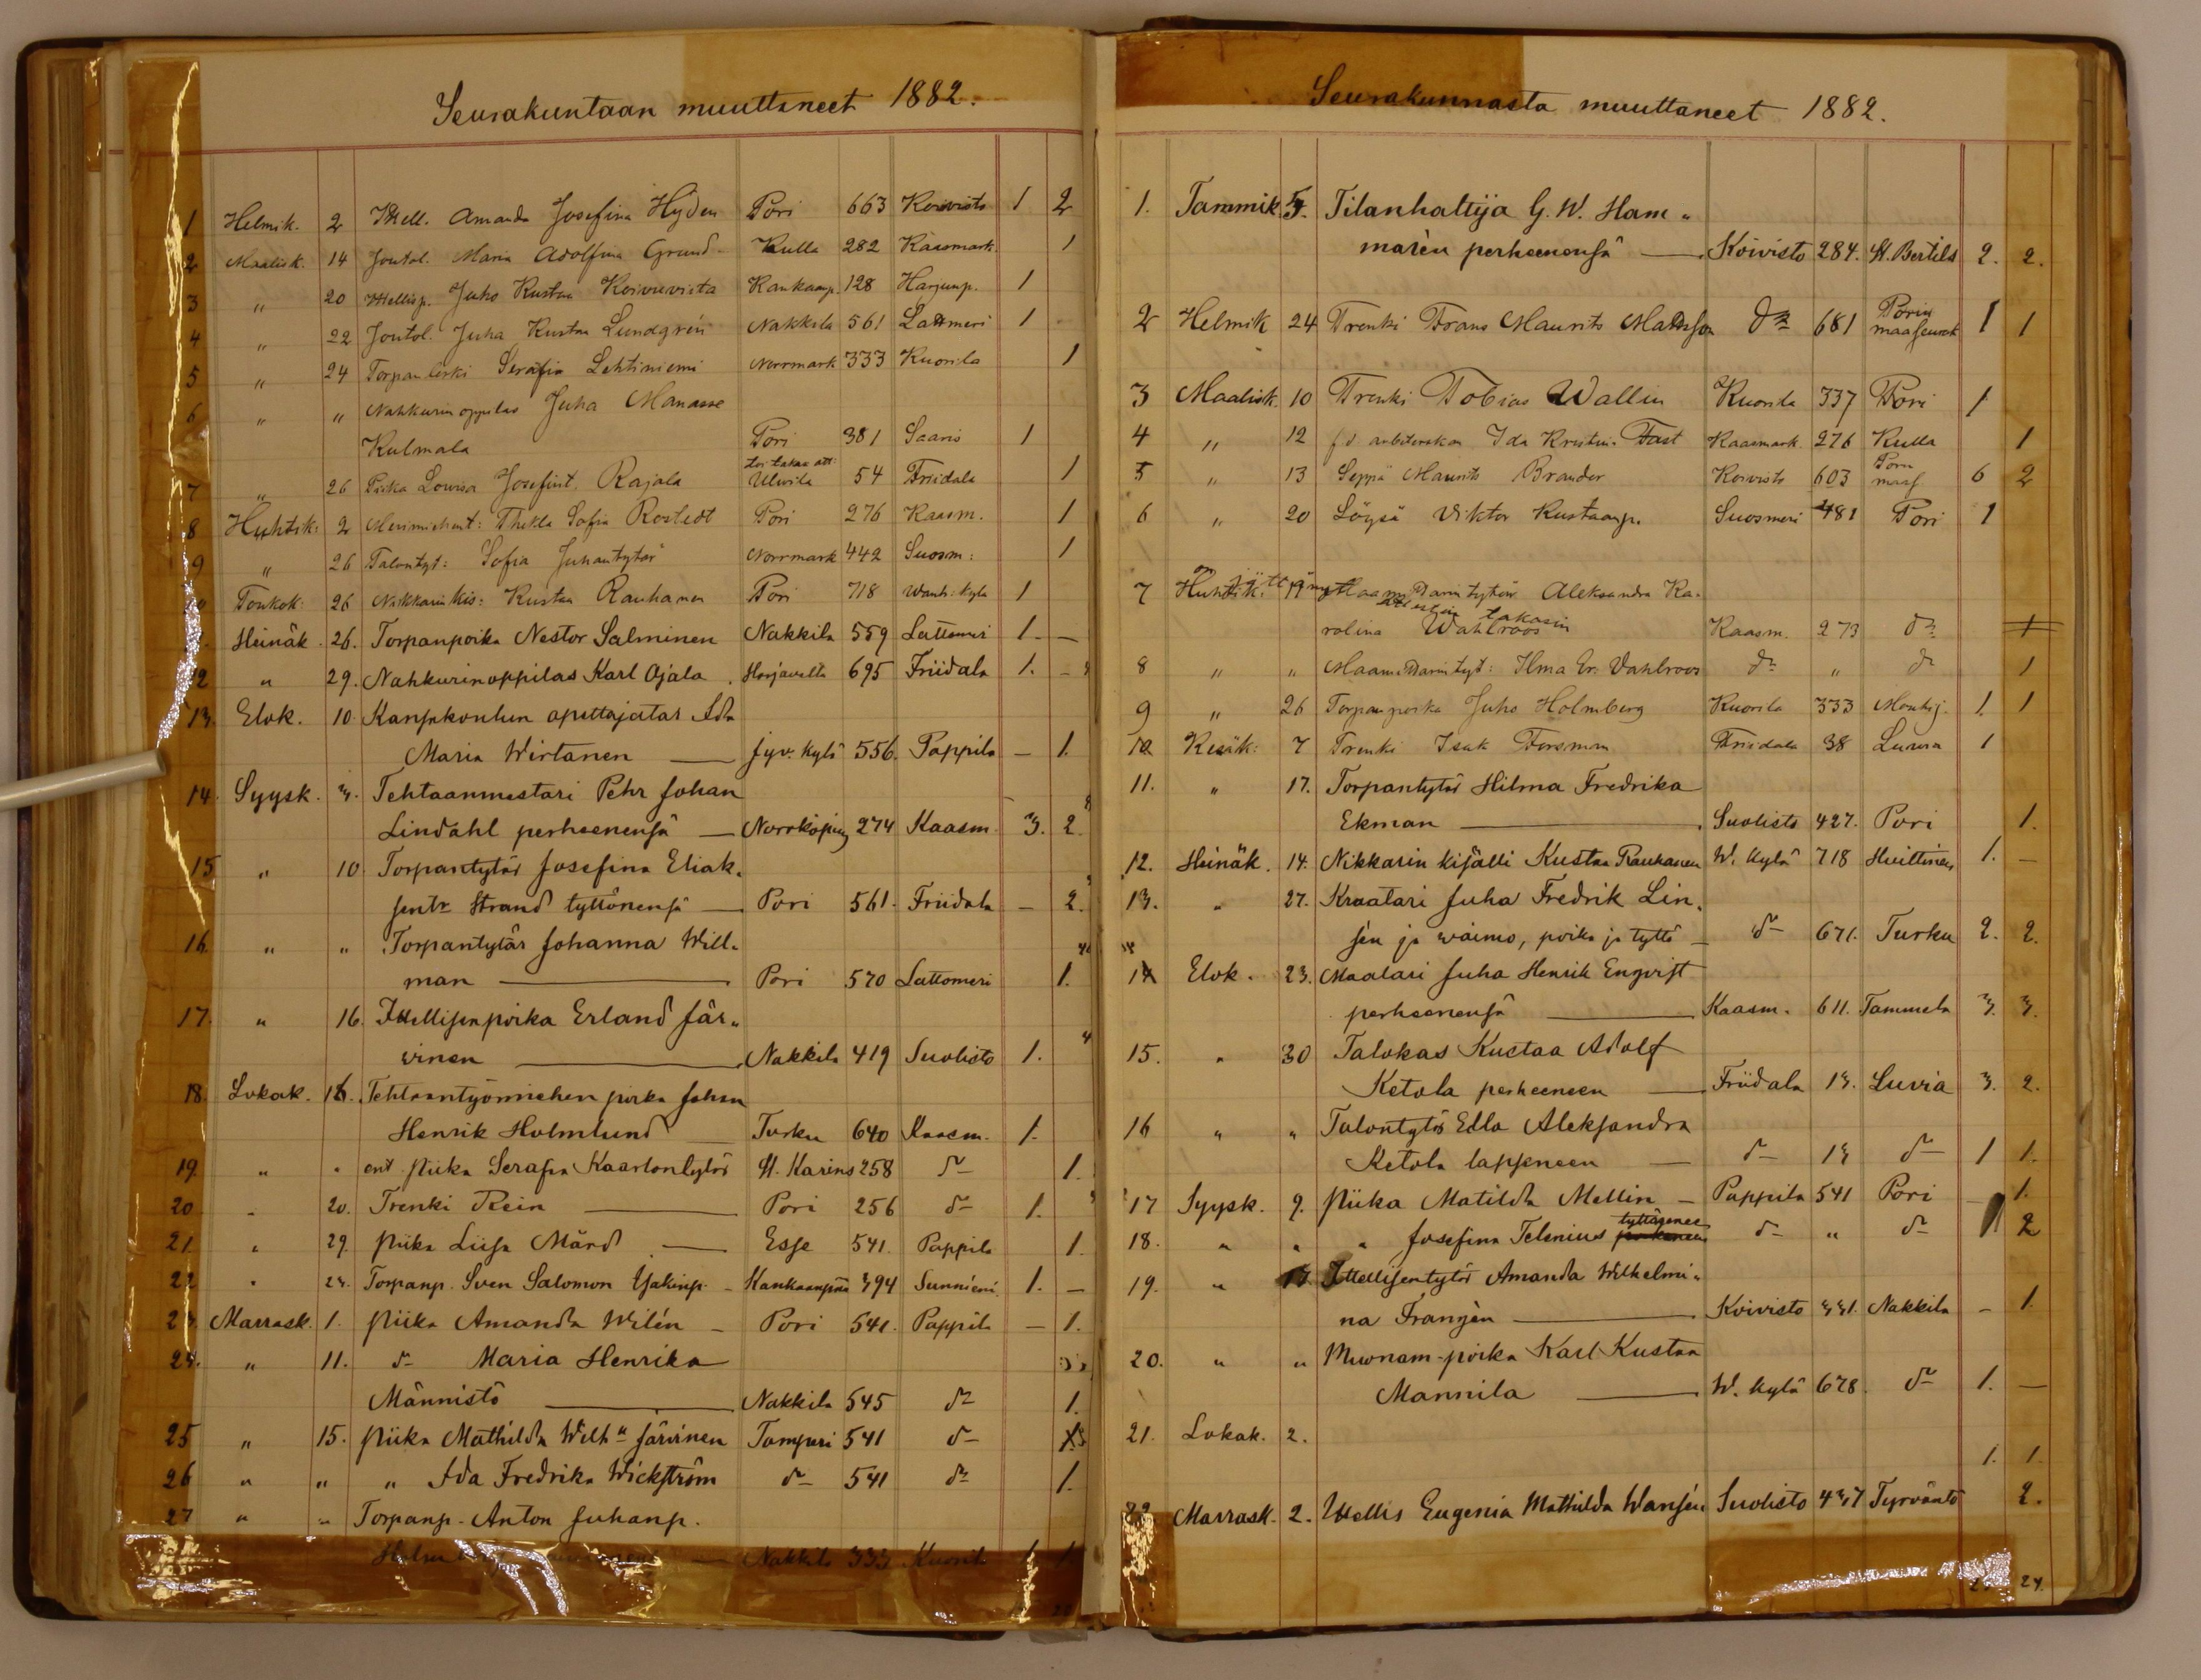 Seurakuntaan muuttaneet 1882.
1 Helmik. 2 Ittell. Amanda Josefina Hyden Pori 663 Koivisto 1 2
2 Maalisk. 14 Joutol. Maria Adolfina Grund Kulla 282 Kaasmark. 1
3 " 20 Ittellisp. Juho Kustaa Koivuvista Kankaanp. 128 Harjunp. 1
4 " 22 Joutol. Juha Kustaa Lundgrén Nakkila 561 Lattmeri 1
5 " 24 Torpanleski Serafia Lehtiniemi Norrmark 333 Kuorila 1
6 " " Nahkurinoppilas Juha Manasse
Kulmala Pori 381 Saaris 1
7 " 26 Piika Lovisa Josefint. Rajala Ulvila 54 Friidala 1
8 Huhtik: 2 Merimiehent: Thekla Sofia Rostedt Pori 276 Kaasm. 1
9 " 26 Talontyt: Sofia Juhantytär Norrmark 442 Suosm: 1
Toukok: 26 Nikkarin kis: Kustaa Rauhanen Pori 718 Wanh: kylä 1
Heinäk. 26. Torpanpoika Nestor Salminen Nakkila 559 Lattomeri 1. —
2 " 29. Nahkurinoppilas Karl Ojala Harjavalta 695 Friidala 1. —
13. Elok. 10. Kansakoulun opettajatar Ida
Maria Wirtanen — Jyv. kylä 556. Pappila — 1.
14. Syysk. 3. Tehtaanmestari Pehr Johan
Lindahl perheenensä — Norrköping 274 Kaasm. 3. 2.
15 " 10 Torpantytär Josefina Eliak-
sentr Strand tyttönensä — Pori 561. Friidala — 2.
16. " " Torpantytär Johanna Will-
man — Pori 570 Lattomeri 1.
17. " 16. Ittellisenpoika Erland Jär-
vinen — Nakkila 419 Suolisto 1.
18. Lokak. 16. Tehtaantyömiehen poika Johan
Henrik Holmlund — Turku 640 Kaasm. 1.
19. " " ent. piika Serafia Kaarlontytär St. Karins 258 d:o 1.
20 " 20. Trenki Rein — Pori 256 d:o 1.
21 " 29. piika Liisa Mård — Esse 541. Pappila 1.
22 " 23. Torpanp. Sven Salomon Yjakinp. — Kankaanpää 394 Sunniemi 1. —
23 Marrask. 1. piika Amanda Wilén — Pori 541. Pappila — 1.
24. " 11. d:o Maria Henrika
Männistö — Nakkila 545 d:o 1.
25 " 15. piika Mathilda Wilh:a Järvinen Tamperi 541 d:o
26 " " " Ida Fredrika Wickström d:o 541 d:o 1.
27 " " Torpanp. Anton Juhanp.
Nakkila 333 Kuorila 1 1
Seurakunnasta muuttaneet 1882.
1. Tammik. 5. Tilanhaltija G. W. Ham-
marén perheenensä — Koivisto 284. St. Bertils 2. 2.
2 Helmik 24 Trenki Frans Maurits Mattsson d:o 681 Porin maaseurak 1 1
3 Maalisk. 10 Trenki Tobias Wallin Kuorila 337 Pori 1
4 " 12 f d arbeterskan Ida Kristina Fast Kaasmark. 276 Kulla 1
5 " 13 Seppä Maurits Brander Koivisto 603 Porin maas 6 2
6 " 20 Löysä Viktor Kustaanp. Suosmeri 481 Pori 1
7 Huhtik. 19 Maamittarin tytär Aleksandra Ka-
rolina Wahlroos takasin Kaasm. 273 d:o 1
8 " " Maamittarin tyt: Ilma Er. Vahlroos d:o " d:o 1
9 " 26 Torpanpoika Juho Holmberg Kuorila 333 Mouhij. 1. 1
10 Kesäk: 7 Trenki Isak Forsman Friidala 38 Luvia 1
11. " 17. Torpantytär Hilma Fredrika
Ekman — Suolisto 427. Pori 1.
12. Heinäk. 14. Nikkarin kisälli Kustaa Rauhanen W. kylä 718 Huittinen 1. —
13. " 27. Kraatari Juha Fredrik Lin-
sen ja waimo, poika ja tyttö — d:o 671. Turku 2. 2.
14 Elok. 23. Maalari Juha Henrik Engvist
perheenensä — Kaasm. 611. Tammela 3. 3.
15. " 30 Talokas Kustaa Adolf
Ketola perheeneen — Friidala 13. Luvia 3. 2.
16 " " Talontytär Edla Aleksandra
Ketola lapseneen — d:o 13 d:o 1 1.
17 Syysk. 9. piika Matilda Mellin — Pappila 541 Pori — 1.
18. " " " Josefina Telenius tyttärenee d:o " d:o 2
19. " Ittellisentytär Amanda Wilhelmi-
na Frangén — Koivisto 331. Nakkila — 1.
20. " " Muonam-poika Karl Kustaa
Mannila — W. kylä 678. d:o 1. —
21. Lokak. 2.
1. 1.
22. Marrask. 2. Ittellis Eugenia Mathilda Wansén Suolisto 437 Tyrväntö 2.
24.